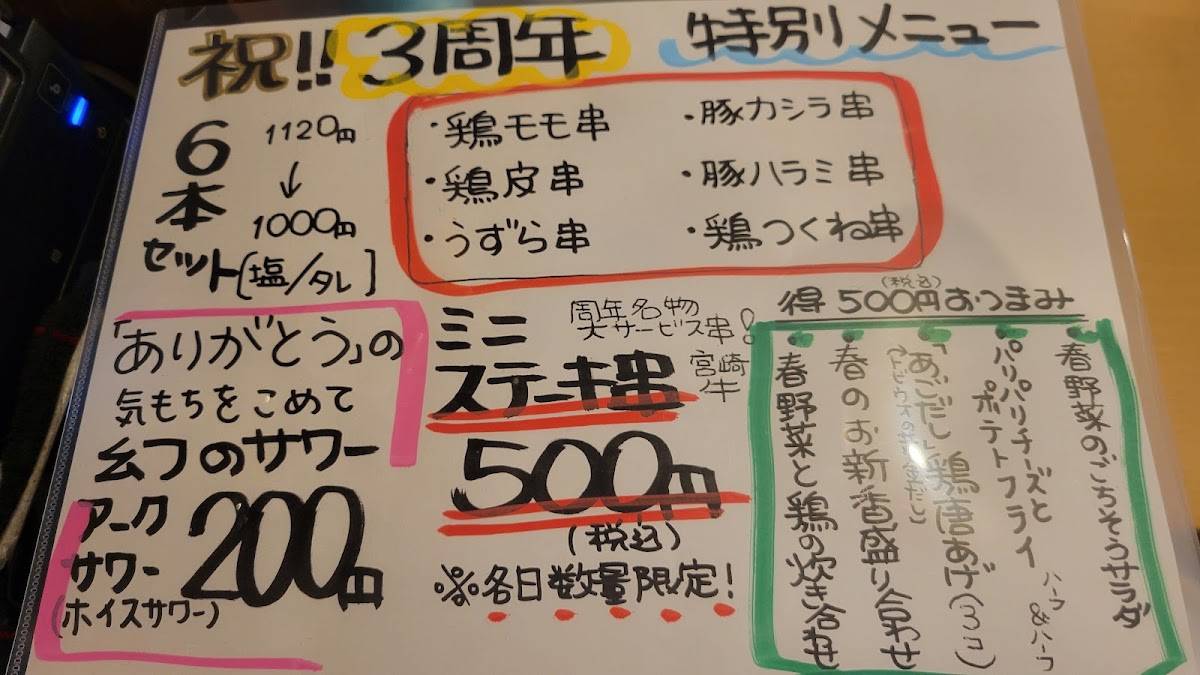 祝!! 3周年 特別メニュー
6本セット
1120円
↓
1000円
[塩/タレ]
・鶏モモ串
・鶏皮串
・うずら串
・豚カシラ串
・豚ハラミ串
・鶏つくね串
「ありがとう」の
気もちをこめて
幻のサワー
アーク
サワー
(ホイスサワー)
200円
周年名物
大サービス串!
ミニ
ステーキ串
宮崎牛
500円
(税込)
※各日数量限定!
得 500円おつまみ
(税込)
春野菜のごちそうサラダ
パリパリチーズと
ポテトフライ
ハーフ&ハーフ
「あごだし」鶏唐あげ(3コ)
春のお新香盛り合わせ
春野菜と鶏の炊き合わせ